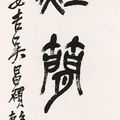 簡
安吉吳昌碩